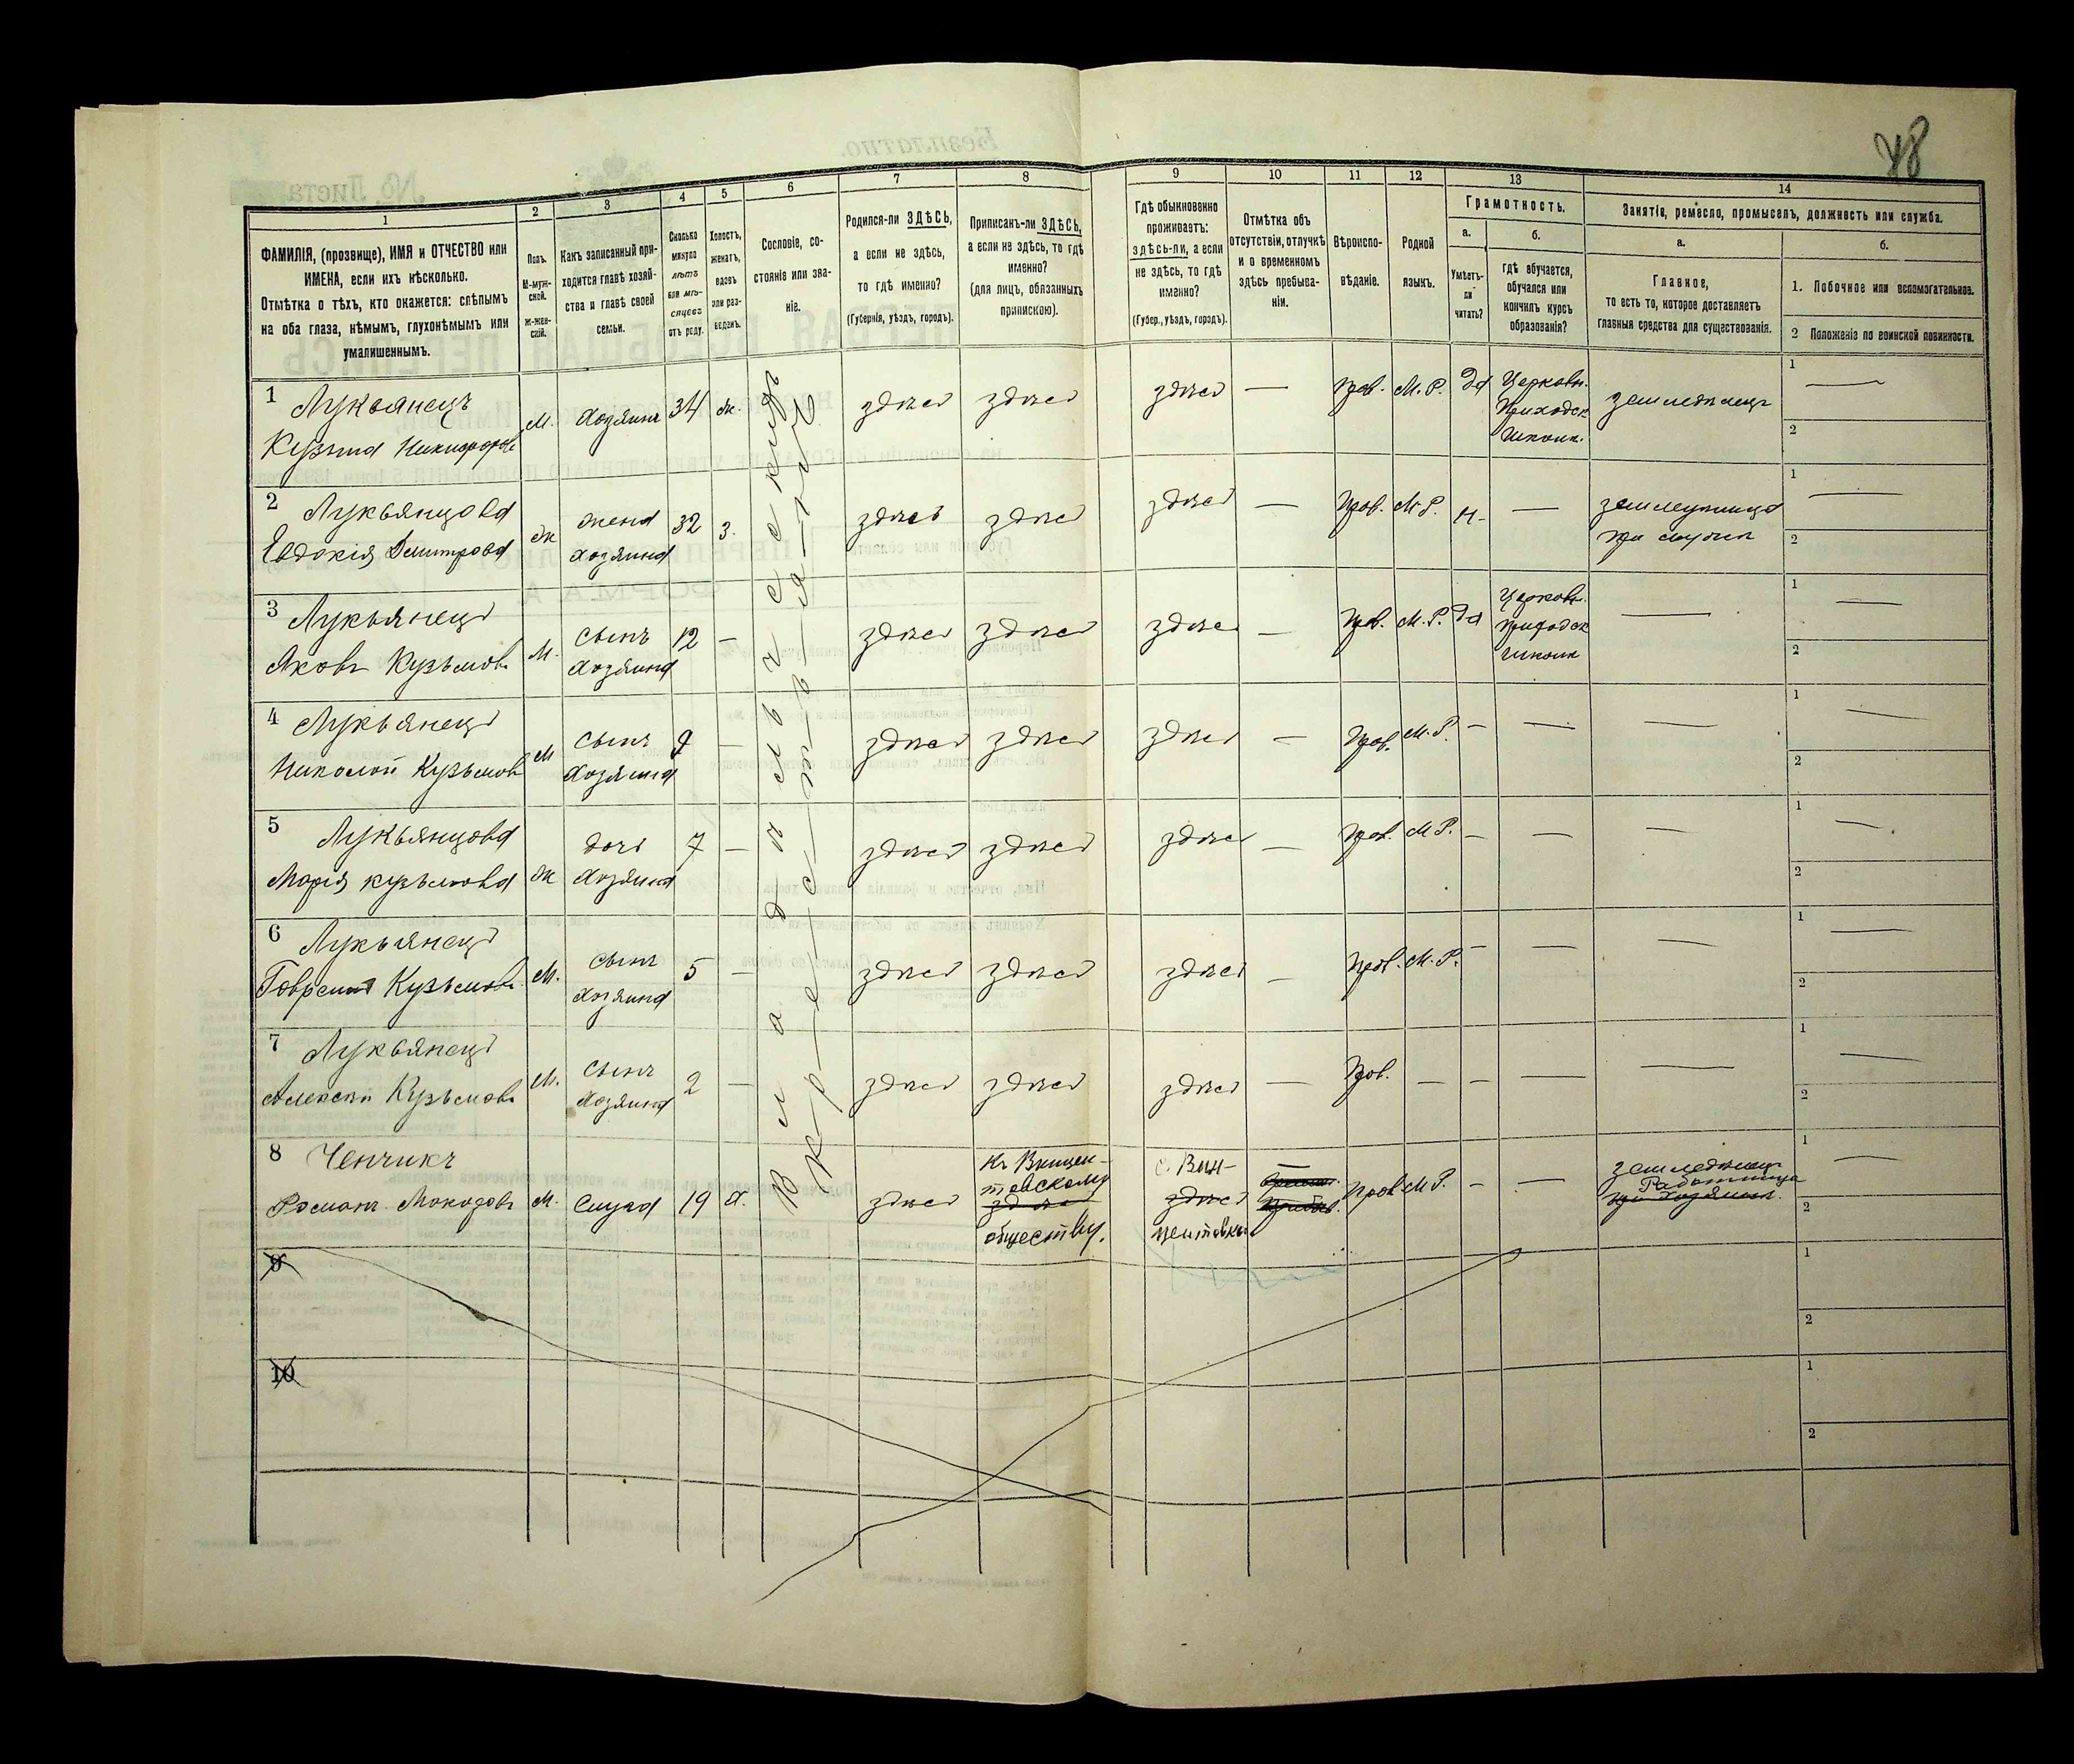 48
1
2
3
4
5
6
7
8
9
10
11
12
13
14
ФАМИЛІЯ, (прозвище), ИМЯ и ОТЧЕСТВО или
ИМЕНА, если ихъ нѣсколько.
Отмѣтка о тѣхъ, кто окажется: слѣпымъ
на оба глаза, нѣмымъ, глухонѣмымъ или
умалишеннымъ.
Полъ.
М-муж-
ской.
Ж-жен-
скій.
Какъ записанный при-
ходится главѣ хозяй-
ства и главѣ своей
семьи.
Сколько
минуло
лѣтъ
или мѣ-
сяцевъ
отъ роду.
Холостъ,
женатъ,
вдовъ
или раз-
веденъ.
Сословіе, со-
стояніе или зва-
ніе.
Родился-ли ЗДѢСЬ,
а если не здѣсь,
то гдѣ именно?
(Губернія, уѣздъ, городъ).
Приписанъ-ли ЗДѢСЬ,
а если не здѣсь, то гдѣ
именно?
(для лицъ, обязанныхъ
припискою).
Гдѣ обыкновенно
проживаетъ:
здѣсь-ли, а если
не здѣсь, то гдѣ
именно?
(Губер., уѣздъ, городъ).
Отмѣтка объ
отсутствіи, отлучкѣ
и о временномъ
здѣсь пребыва-
ніи.
Вѣроиспо-
вѣданіе.
Родной
языкъ.
Грамотность.
а.
Умѣетъ-
ли
читать?
б.
гдѣ обучается,
обучался или
кончилъ курсъ
образованія?
Занятіе, ремесло, промыселъ, должность или служба.
а.
Главное,
то есть то, которое доставляетъ
главныя средства для существованія.
б.
1. Побочное или вспомогательное.
2 Положеніе по воинской повинности.
Владѣльческихъ
Крестьянъ
1 Лукьянецъ
Кузьма Никифоровъ
М. Хозяинъ 34 ж. здѣсь здѣсь здѣсь — Прав. М. Р. да Церковн.
Приходск
школѣ
землѣдѣлецъ
1 —
2
2 Лукьянцова
Евдокія Дмитрова
ж жена
хозяина
32 з. здѣсь здѣсь здѣсь — Прав. М. Р. н. —
при мужѣ
1 —
2
3 Лукьянецъ
Яковъ Кузьмовъ
М. сынъ
хозяина
12 — здѣсь здѣсь здѣсь — Прав. М. Р. да Церковн.
Приходск
школѣ
—
1 —
2
4 Лукьянецъ
Николай Кузьмовъ
М сынъ
хозяина
9 — здѣсь здѣсь здѣсь — Прав. М. Р. — — —
1 —
2
5 Лукьянцова
Марія Кузьмова
ж дочь
хозяина
7 — здѣсь здѣсь здѣсь — Прав. М. Р. — — —
1 —
2
6 Лукьянецъ
Кузьмовъ
М. сынъ
хозяина
5 — здѣсь здѣсь здѣсь — Прав. М. Р. — — —
1 —
2
7 Лукьянецъ
Алексѣй Кузьмовъ
М. сынъ
хозяина
2 — здѣсь здѣсь здѣсь — Прав. — — — —
1 —
2
8 Ченчикъ
Романъ
М. Слуга 19 х. здѣсь
Къ Винцен-
товскому
здѣсь
обществу.
с. Вин-
здѣсь
центовка
Прав М. Р. — —
землѣдѣлец
Работница
при хозяинѣ.
1 —
2
9
1
2
10
1
2